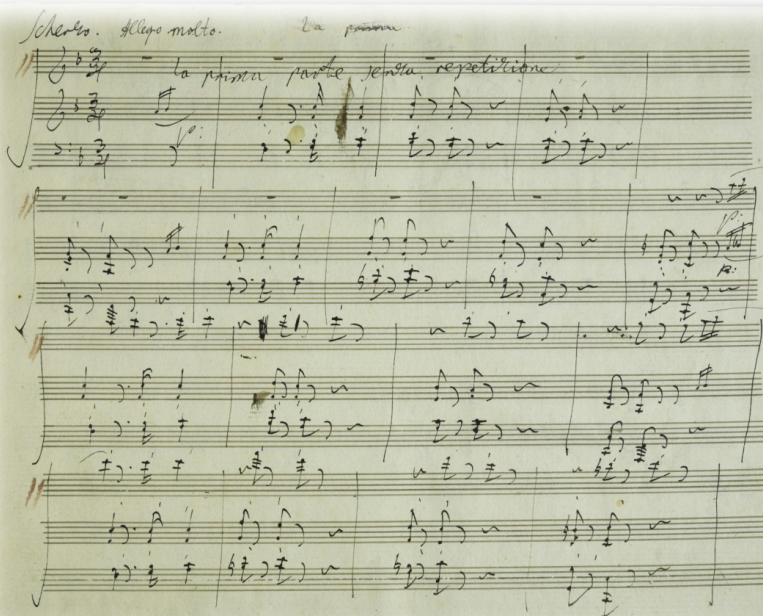 Scherzo. Allegro molto. La prima
La prima parte senza repetizione
p:
p:
p: